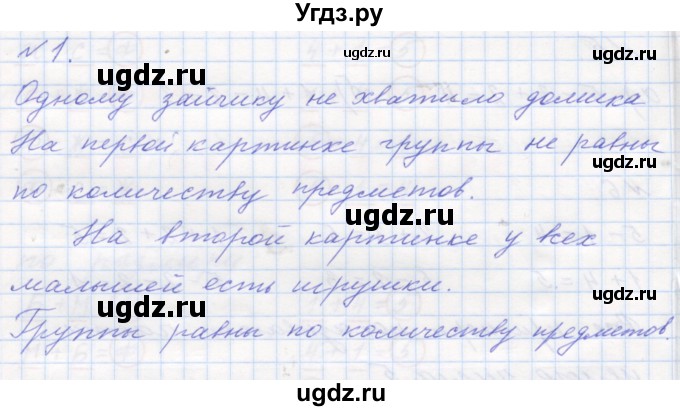 Угдз.ру
№1.
Одному зайчику не хватило домика
На первой картинке группы не равны
по количеству предметов.
На второй картинке у всех
малышей есть игрушки.
Группы равны по количеству предметов.
ugdz.ru
ugdz.ru
ugdz.ru
ugdz.ru
ugdz.ru
ugdz.ru
ugdz.ru
ugdz.ru
ugdz.ru
ugdz.ru
ugdz.ru